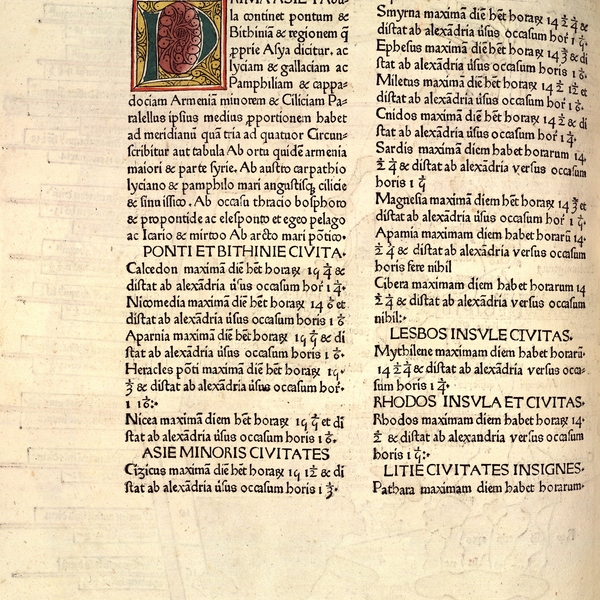 PRIMA ASIE Tabu-
la continet pontum &
Bithiniã & regionem q̃
ꝓprie Asya dicitur. ac
lyciam & gallaciam ac
Pamphiliam & cappa-
dociam Armeniã minorem & Ciliciam Pa-
rallelus ipsius medius ꝓportionem habet
ad meridianũ quã tria ad quatuor Circun-
scribitur aut tabula Ab ortu quidẽ armenia
maiori & parte syrie. Ab austro carpathio
lyciano & pamphilo mari angustisq̃ cilicie
& sinu issico. Ab occasu thracio bosphoro
& propontide ac elesponto et egeo pelago
ac Icario & mirtoo Ab arcto mari põtico.
PONTI ET BITHINIE CIVITA.
Calcedon maximã diẽ hẽt horaꝝ 15 1/4 &
distat ab alexãdria ũsus occasum hoꝛ 1 1/4.
Nicomedia maximã diẽ hẽt horaꝝ 15 1/6 et
distat ab alexãdria ũsus occasum horis 1 1/6
Aparnia maximã diẽ hẽt horaꝝ 15 1/5 & di
stat ab alexãdria ũsus occasum horis 1 1/6.
Heracles põti maximã diẽ hẽt horaꝝ 15.
1/3 & distat ab alexãdria ũsus occasum hoꝛ.
1 1/16:.
Nicea maximã diem hẽt horaꝝ 15 1/5 et di
stat ab alexãdria ũsus occasum horis 1 1/6.
ASIE MINORIS CIVITATES
Cizicus maximã diẽ hẽt horaꝝ 15 1/12 & di
stat ab alexãdria ũsus occasum horis 1 1/3.
Smyrna maximã diẽ hẽt horaꝝ 14 1/2 1/4 &
distat ab alexãdria ũsus occasum hoꝛ 1 1/5.
Ephesus maximã diẽ hẽt horaꝝ 14 2/3 & di
stat ab alexãdria ũsus occasum horis 1 1/6.
Miletus maximã diẽ hẽt horaꝝ 14 1/2 1/12 et
distat ab alexãdria ũsus occasum hoꝛ 1 1/6.
Cnidos maximã diẽ hẽt horaꝝ 14 1/2 & di
stat ab alexãdria ũsus occasum hoꝛ 1 1/4.
Sardis maximã diem hẽt horarum 14.
1/2 1/4 & distat ab alexãdria versus occasum
horis 1 1/5
Magnesia maximã diem hẽt horaꝝ 14 2/3 et
distat ab alexãdria ũsus occasum hoꝛ 1 1/5.
Apamia maximam diem hẽt horarũ 14.
1/2 1/4 & distat ab alexãdria versus occasum
horis fere nihil
Cibera maximam diem hẽt horarum 14
1/2 1/4 & distat ab alexandria versus occasum
nihil:.
LESBOS INSVLE CIVITAS.
Mythilene maximam diem habet horarũ.
14 1/2 1/4 & distat ab alexãdria versus occa-
sum horis 1 1/4.
RHODOS INSVLA ET CIVITAS.
Rhodos maximam diem habet horaꝝ 14.
1/2 & distat ab alexandria versus occasum
horis 1 1/5:.
LITIE CIVITATES INSIGNES.
Pathara maximam diem habet horarum.